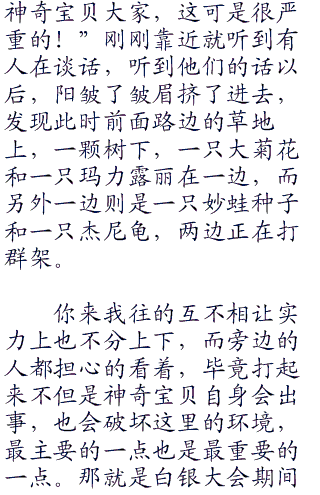 神奇宝贝大家，这可是很严
重的！”刚刚靠近就听到有
人在谈话，听到他们的话以
后，阳皱了皱眉挤了进去，
发现此时前面路边的草地
上，一颗树下，一只大菊花
和一只玛力露丽在一边，而
另外一边则是一只妙蛙种子
和一只杰尼龟，两边正在打
群架。
你来我往的互不相让实
力上也不分上下，而旁边的
人都担心的看着，毕竟打起
来不但是神奇宝贝自身会出
事，也会破坏这里的环境，
最主要的一点也是最重要的
一点。那就是白银大会期间